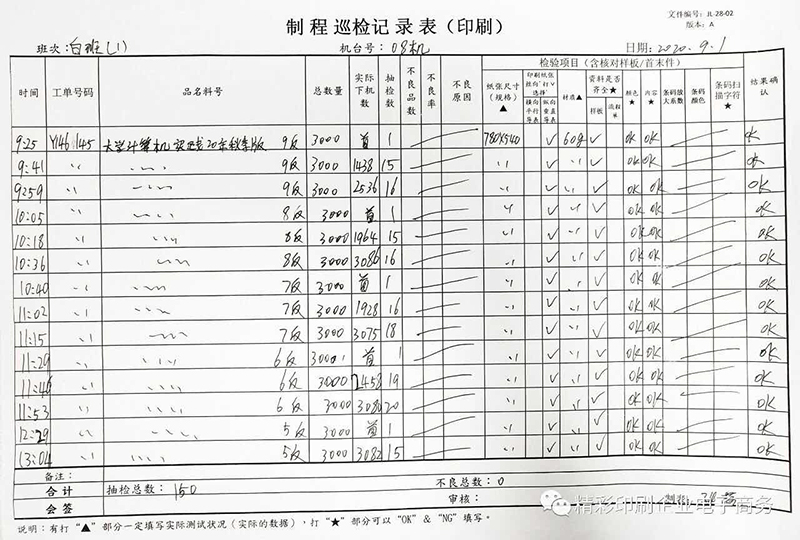 文件编号：JL-28-02
版本：A
制程巡检记录表（印刷）
班次：白班(1) 机台号：08机 日期：2020.9.1
时间 工单号码 品名料号 总数量 实际下机数 抽检数 不良品数 不良率 不良原因 检验项目（含核对样板/首末件） 结果确认
纸张尺寸（规格）▲ 印刷纸张丝向"打√选择" 横向平行导表 纵向垂直导表 材质▲ 资料是否齐全★ 样板 颜色★ 内容★ 条码放大系数 条码颜色 条码扫描字符★
9:25 Y146145 9反 3000 首 1 780X540 √ 60g √ OK OK OK
9:41 〃 〃 9反 3000 1438 15 〃 √ 〃 √ OK OK OK
9:59 〃 〃 9反 3000 2536 16 〃 √ 〃 √ OK OK OK
10:05 〃 〃 8反 3000 首 1 〃 √ 〃 √ OK OK OK
10:18 〃 〃 8反 3000 1964 15 〃 √ 〃 √ OK OK OK
10:36 〃 〃 8反 3000 3086 16 〃 √ 〃 √ OK OK OK
10:40 〃 〃 7反 3000 首 1 〃 √ 〃 √ OK OK OK
11:02 〃 〃 7反 3000 1928 16 〃 √ 〃 √ OK OK OK
11:15 〃 〃 7反 3000 3075 18 〃 √ 〃 √ OK OK OK
11:29 〃 〃 6反 3000 首 1 〃 √ 〃 √ OK OK OK
11:46 〃 〃 6反 3000 2458 19 〃 √ 〃 √ OK OK OK
11:53 〃 〃 6反 3000 3080 20 〃 √ 〃 √ OK OK OK
12:29 〃 〃 5反 3000 首 1 〃 √ 〃 √ OK OK OK
13:04 〃 〃 5反 3000 3082 15 〃 √ 〃 √ OK OK OK
备注：
合计 抽检总数：150 不良总数：0
会签 审核：
说明：有打"▲"部分一定填写实际测试状况（实际的数据），打"★"部分可以"OK"&"NG"填写。
精彩印刷企业电子商务